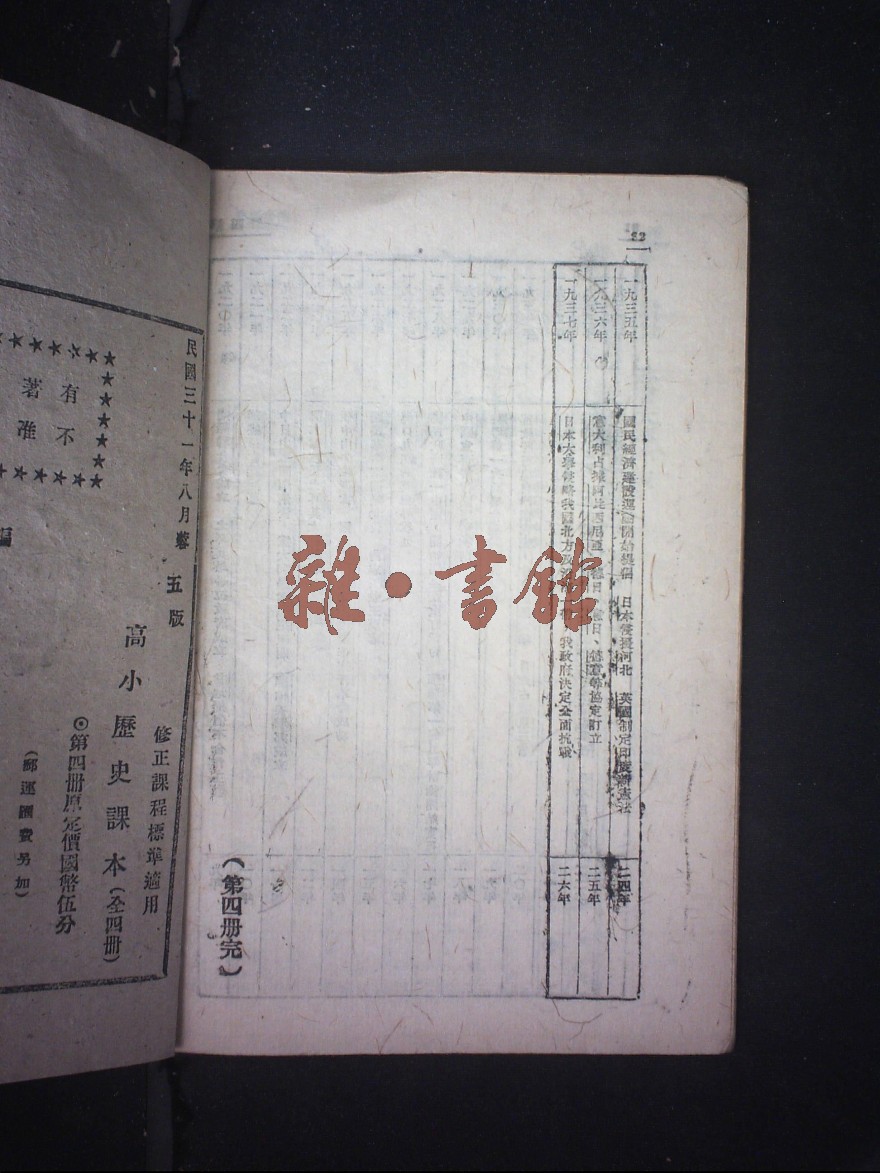 32
一九三五年
國民經濟建設運動開始提倡 日本侵擾河北 英國制定印度新憲法
二四年
一九三六年
意大利占據阿比西尼亞 日、德意等協定訂立
二五年
一九三七年
日本大舉侵略我國北方及 我政府決定全面抗戰
二六年
(第四册完)
雜·書館
民國三十一年八月蓉
五版
修正課程標準適用
高小歷史課本(全四册)
◎第四册原定價國幣伍分
(郵運匯費另加)
有
不
著
准
編